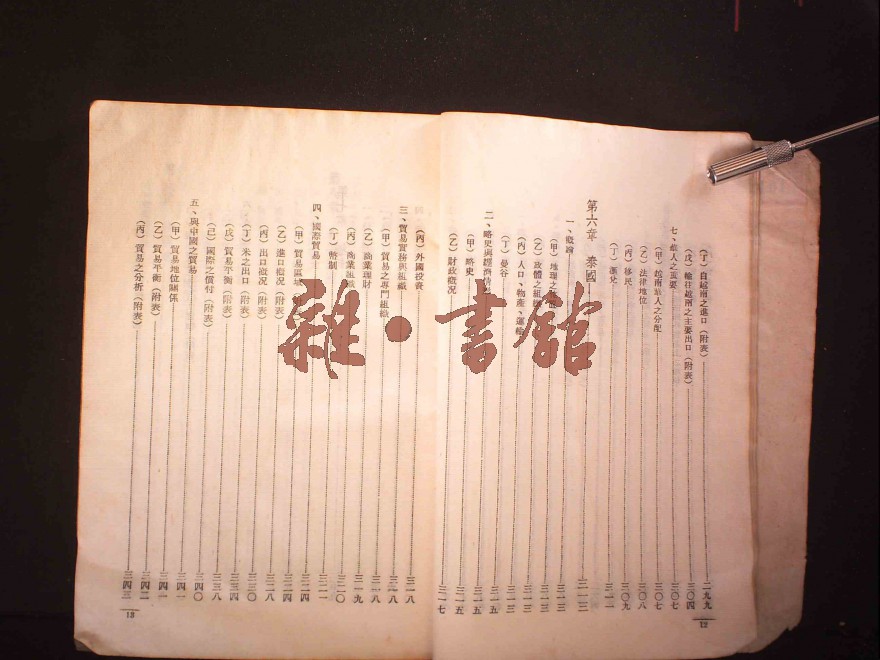 (丁) 自越南之進口 (附表) 二九九
(戊) 輸往越南之主要出口 (附表) 三〇四
七、華人之重要 三〇七
(甲) 越南華人之分配 三〇七
(乙) 法律地位 三〇八
(丙) 移民 三〇九
(丁) 歷史 三一二
第六章 泰國
一、概論 三一三
(甲) 地理之
(乙) 政體之組織 三一三
(丙) 人口、物產、運輸 三一三
(丁) 曼谷
二、略史與經濟 三一五
(甲) 略史 三一五
(乙) 財政概况 三一七
12
(丙) 外國投資 三一八
三、貿易實務與組織 三一八
(甲) 貿易之專門組織 三一八
(乙) 商業理財 三一九
(丙) 商業組織 三二〇
(丁) 幣制 三二一
四、國際貿易 三二四
(甲) 貿易區域
(乙) 進口概况 (附表) 三二八
(丙) 出口概况 (附表) 三三〇
(丁) 米之出口 (附表) 三三四
(戊) 貿易平衡 (附表) 三三八
(己) 國際之償付 (附表) 三四〇
五、與中國之貿易 三四一
(甲) 貿易地位關係 三四一
(乙) 貿易平衡 (附表) 三四二
(丙) 貿易之分析 (附表) 三四三
13
雜·書館